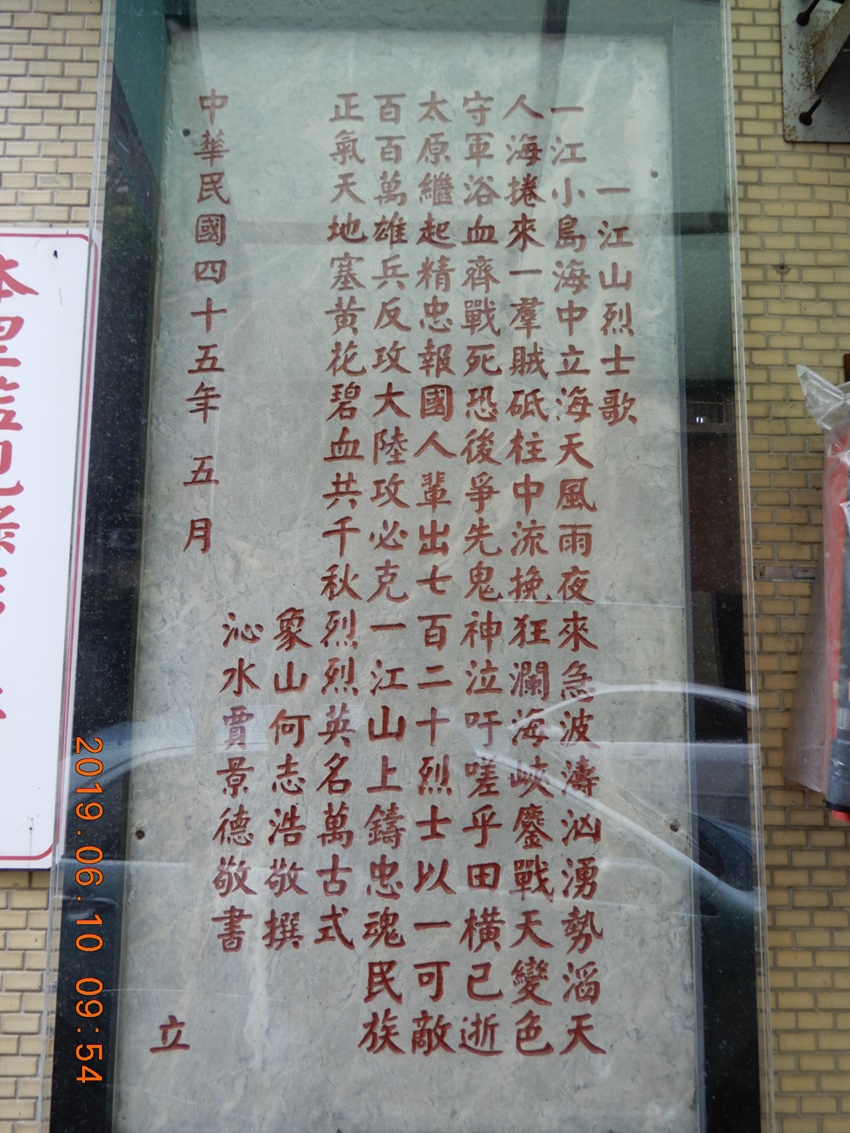 一江山烈士歌
一江小島海中立海天風雨夜來急波濤洶湧勢滔天
人海捲來一羣賊砥柱中流挽狂瀾海峽鏖戰天變色
守軍浴血齊戰死恐後爭先鬼神泣吁嗟乎田橫已逝
太原繼起精忠報國人輩出七百二十烈士以一可敵
百百萬雄兵反攻大陸攻必克一江山上鑄忠魂民族
正氣天地塞黃花碧血共千秋烈烈英名萬古式
象山何志浩敬撰
沁水賈景德敬書
中華民國四十五年五月
立
2019.06.10 09:54